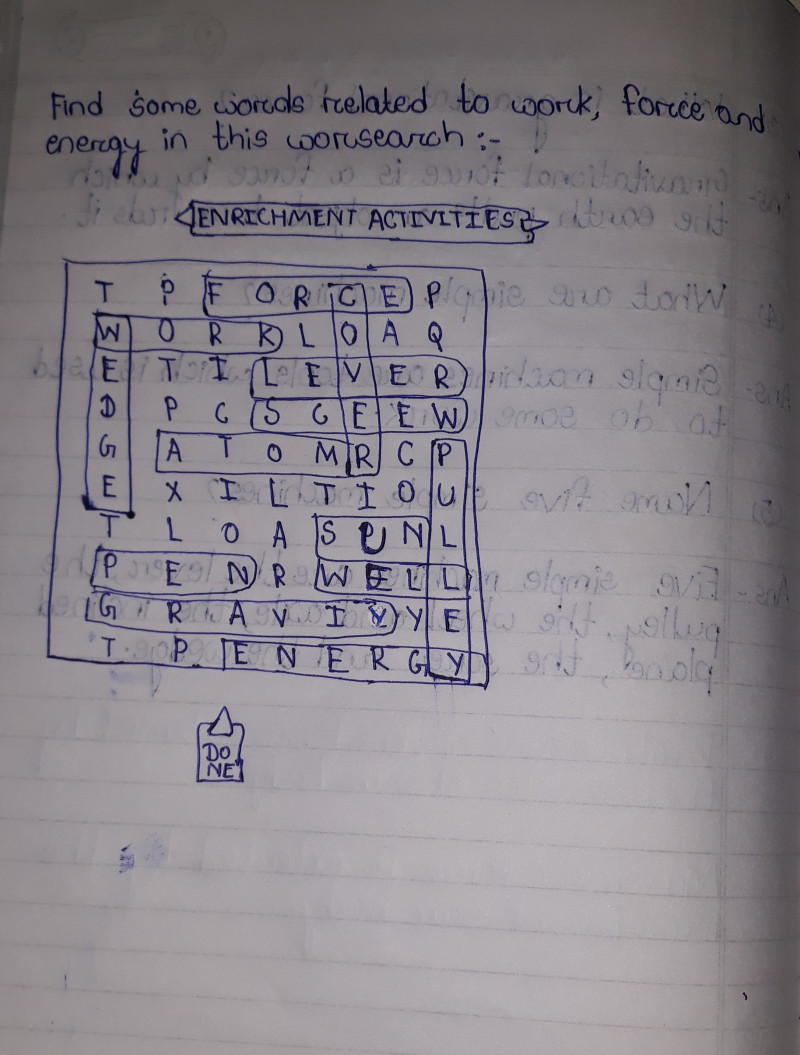 Find some words related to work, force and
energy in this worsearch :-
ENRICHMENT ACTIVITIES
T P F O R C E P
W O R K L O A Q
E T I L E V E R
D P C S C E E W
G A T O M R C P
E X I L T I O U
T L O A S U N L
P E N R W E L L
G R A V I Y Y E
T P E N E R G Y
DO
NE